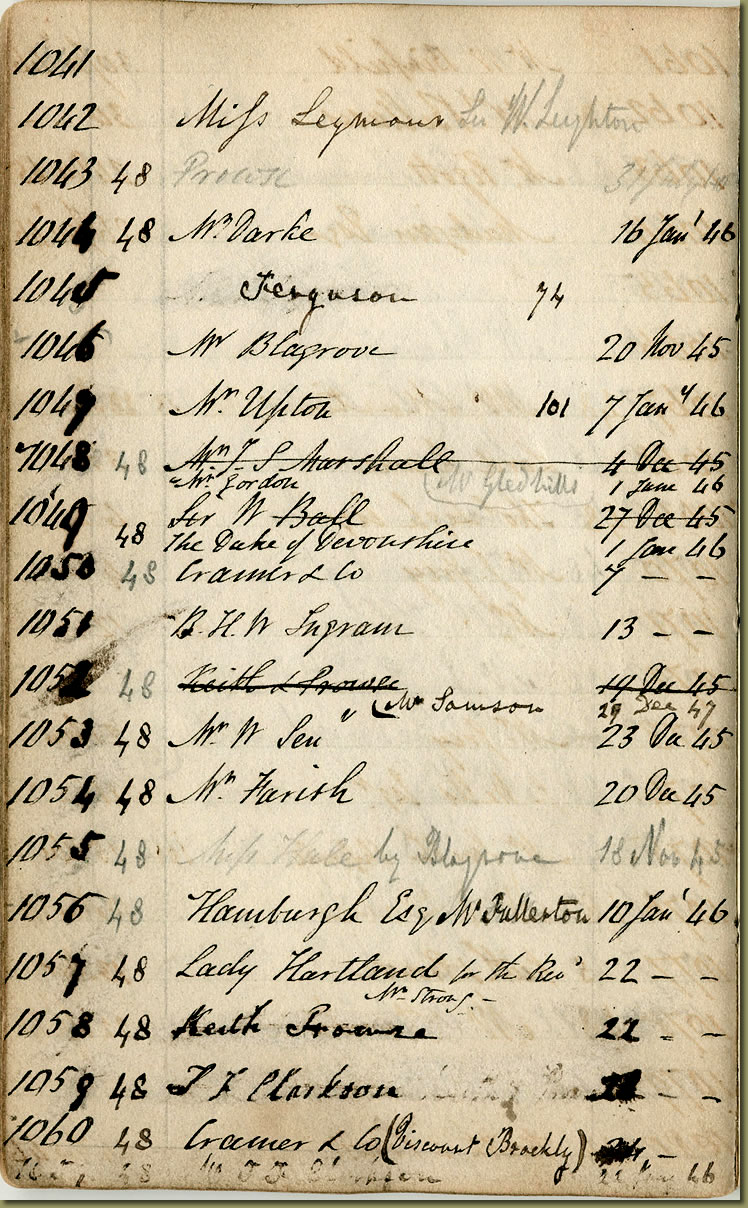 1041
1042 Miss Seymour Sir W. Leighton
1043 48 Prowse
1044 48 Mr Darke 16 Jany 46
1045 Ferguson 74
1046 Mr Blagrove 20 Nov 45
1049 Mr. Upton 101 7 Jany 46
1048 48 Mr J S Marshall 4 Dec 45
Mr Gordon (Mr Gledhills 1 Jan 46
1049 Sir W Ball 27 Dec 45
48 The Duke of Devonshire 1 Jan 46
1050 48 Cramer & Co 7 – –
1051 B. H. W Ingram 13 – –
1052 48 Keith & Prowse 19 Dec 45
(Mr Samson 29 Dec 47
1053 48 Mr W Senr 23 Dec 45
1054 48 Mr Farish 20 Dec 45
1055 48 Miss Hale by Blagrove 18 Nov 45
1056 48 Hamburgh Esq Mr Fullerton 10 Jany 46
1057 48 Lady Hartland for the Revd 22 – –
Mr Strong –
1058 48 Keith Prowse 22 – –
1059 48 J F Clarkson –
1060 48 Cramer & Co (Viscount Brackly) –
48 Mr J F Clarkson 46